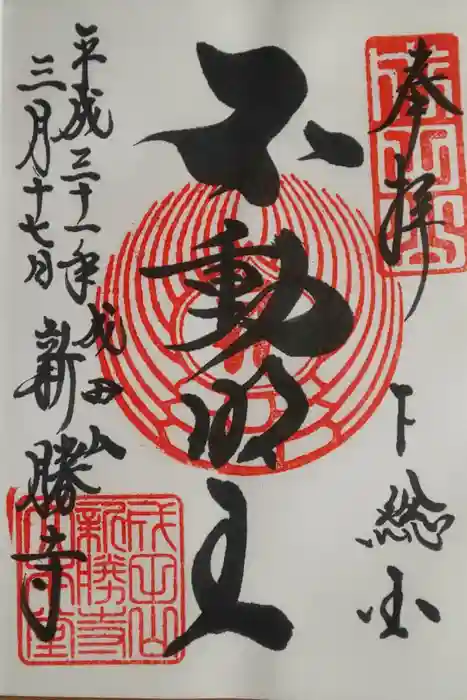 奉拝
下総国
不動明王
成田山
新勝寺
平成三十一年
三月十七日
成田山
新勝寺